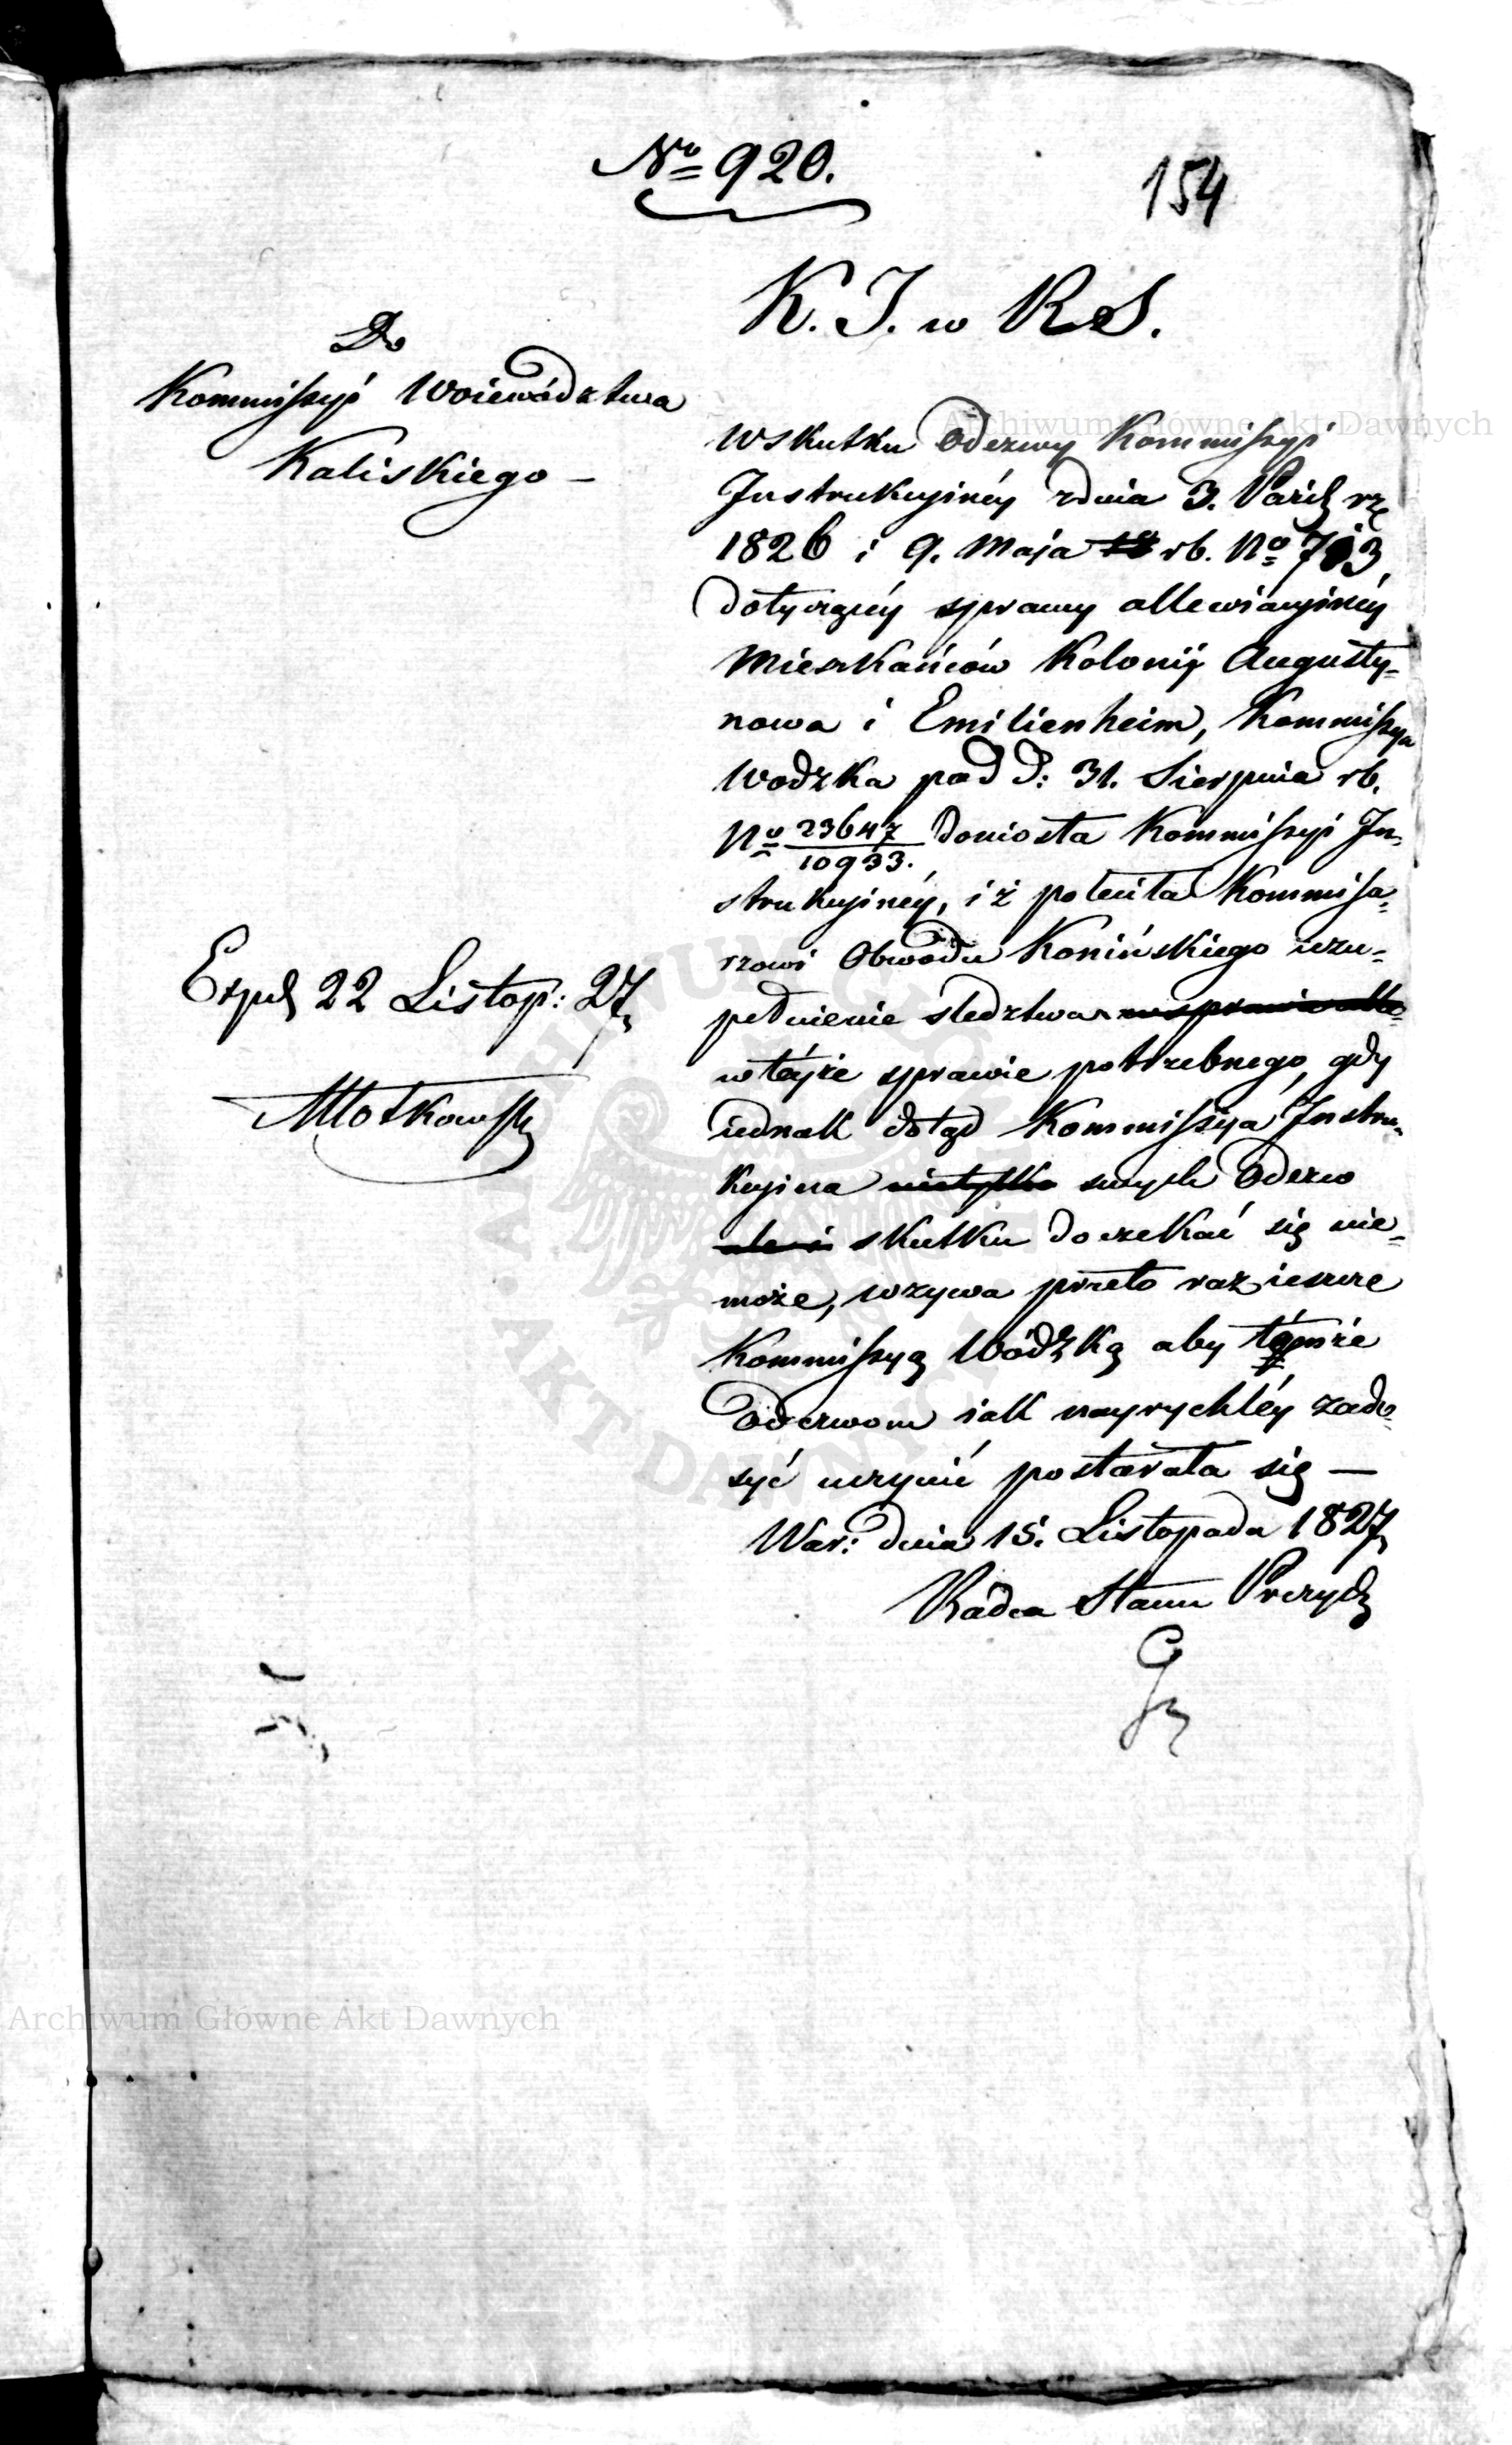 No 920.
154
K. J. w R S.
Do
Kommissyi Woiewództwa
Kaliskiego –
Wskutku Odezwy Kommissyi
Instrukcyinéy z dnia 3. Paźdz rz
1826 i 9. Maja rb. No 713
dotyczącéy sprawy allewiacyinéy
Mieszkańców Kolonij Augusty-
nowa i Emilienheim, Kommissya
Wodzka pod d: 31. Sierpnia rb.
No 23647/10933. doniosła Kommissyi In-
strukcyinéy, iż poleciła Kommissa-
rzowi Obwodu Konińskiego uzu-
pełnienie sledztwa
w téyże sprawie potrzebnego, gdy
iednak dotąd Kommissya Instru-
kcyina nietylko swych Odezw
ale i skutku doczekać się nie-
może, wzywa przeto raz ieszcze
Kommissyą Wódzką aby
Odezwom iak nayrychléy zado-
syć uczynić postarała się —
War: dnia 15. Listopada 1827
Radca Stanu Prezyd
Exped 22 Listop: 27
Młotkowski
Archiwum Główne Akt Dawnych
ARCHIWUM GŁÓWNE AKT DAWNYCH
Archiwum Główne Akt Dawnych